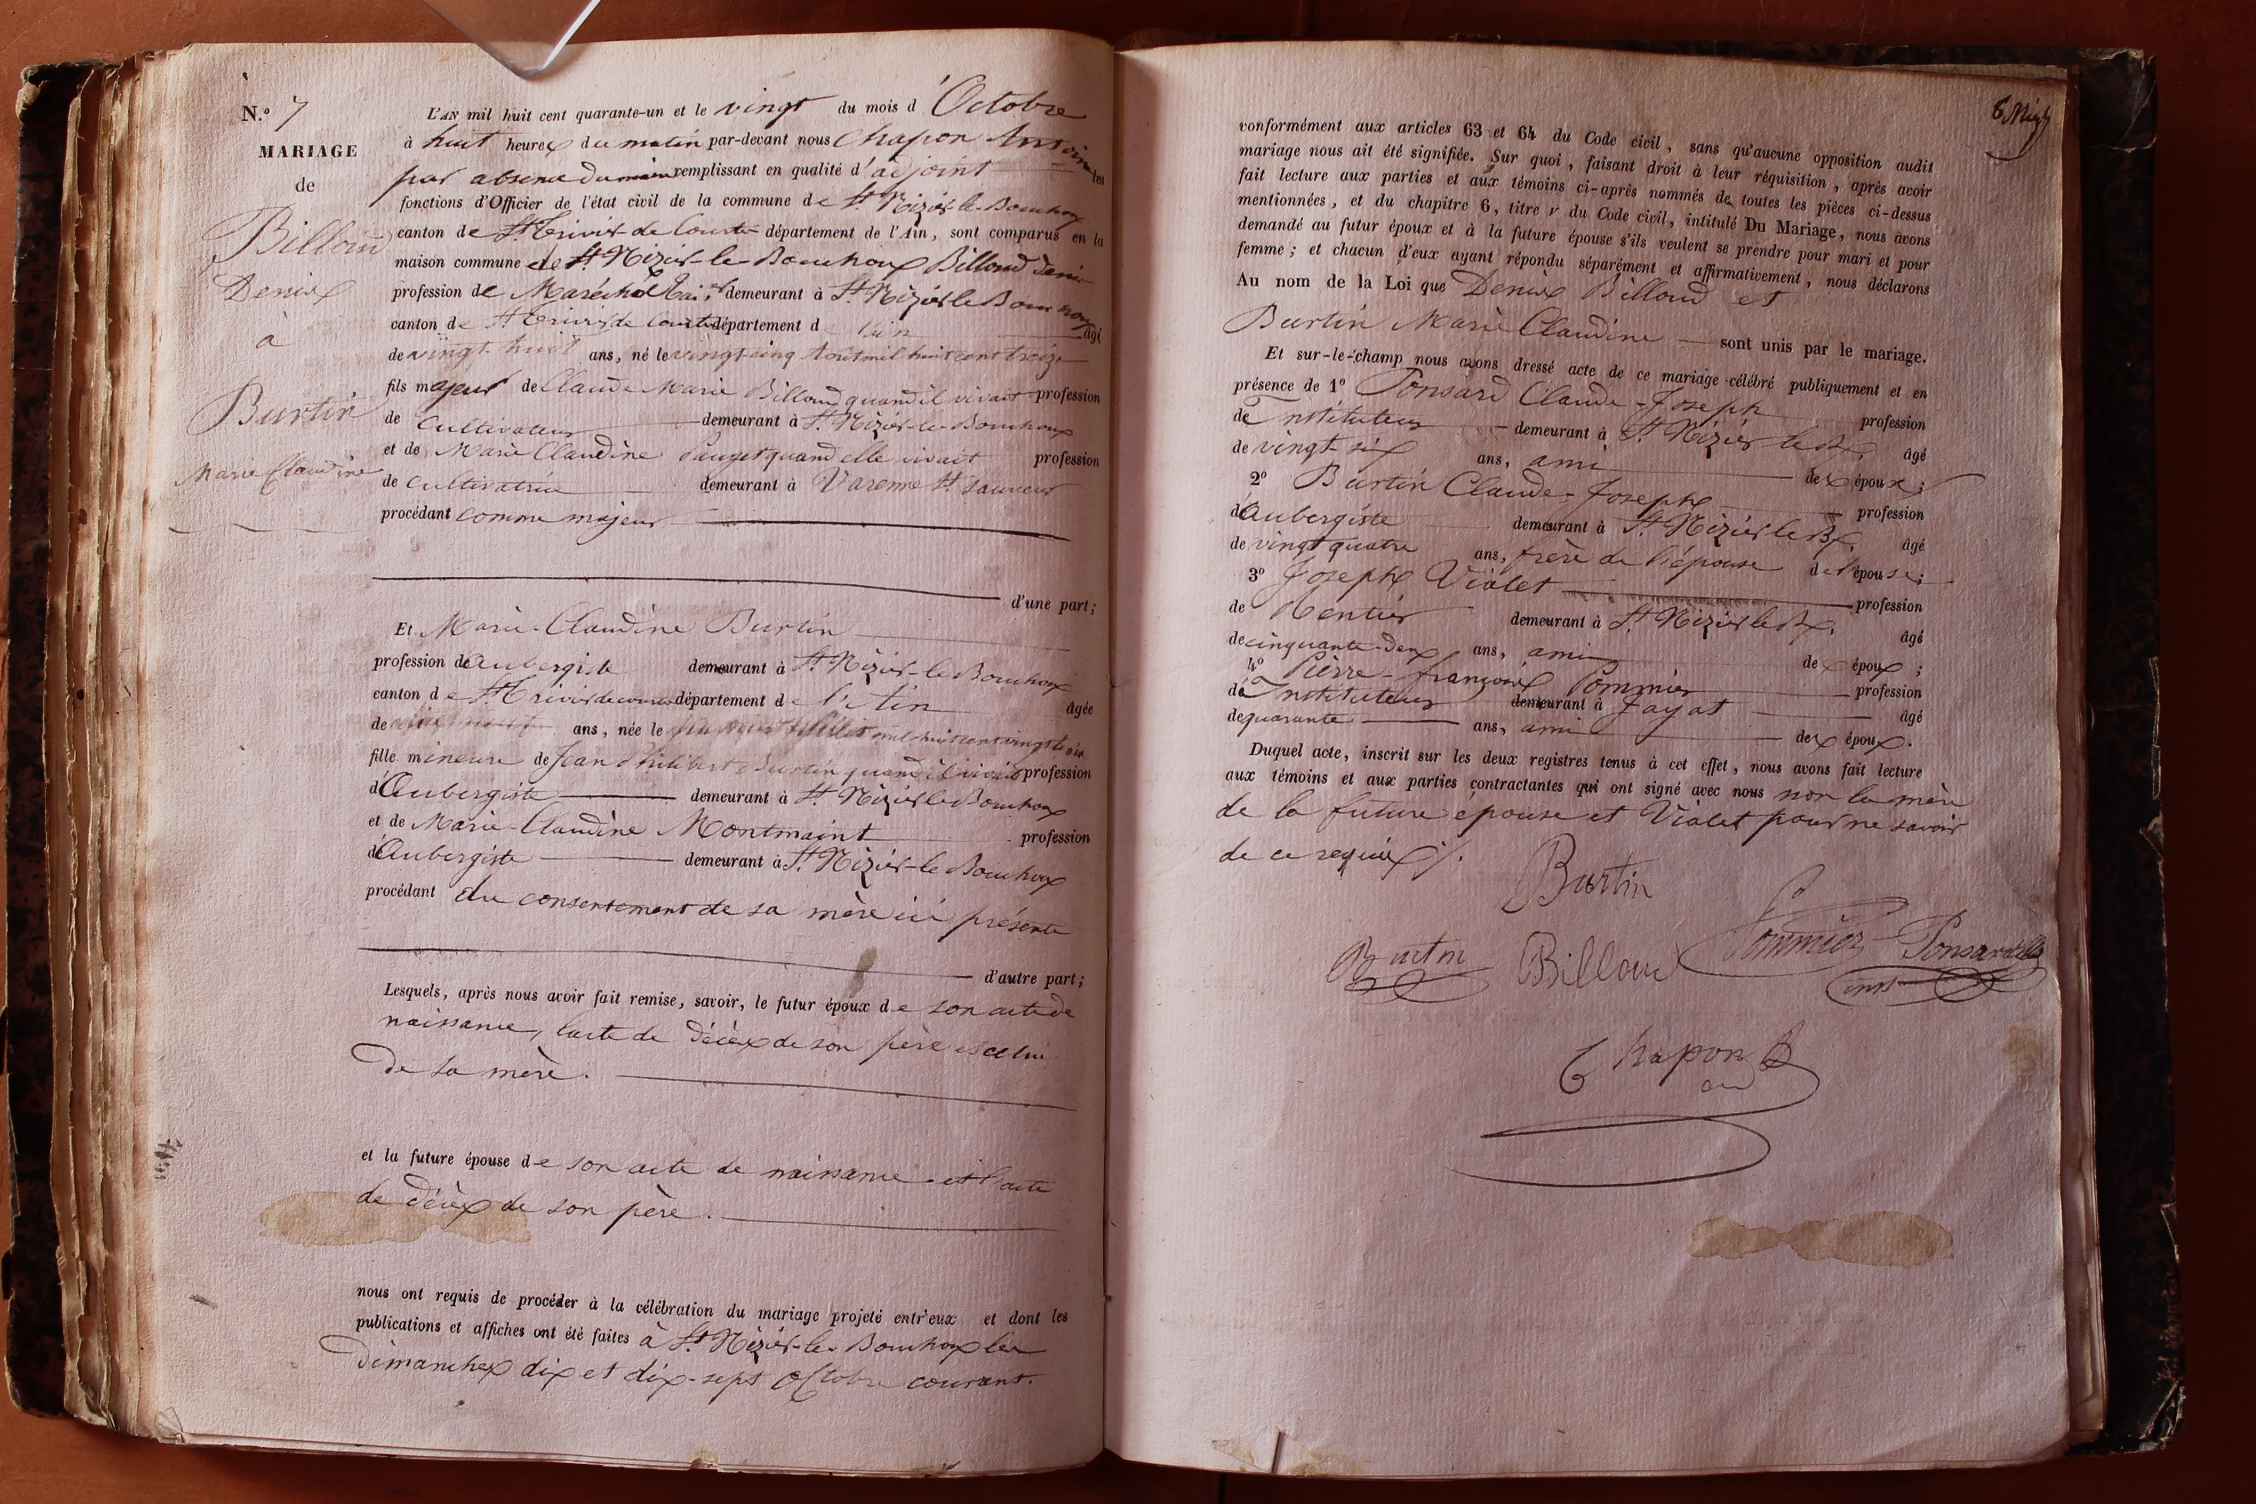 N.° 7
MARIAGE
de
Billoud
Denix
à
Burtin
Marie Claudine
L'AN mil huit cent quarante-un et le vingt du mois d'Octobre
à huit heures du matin par-devant nous Chapon Antoine
par absence du maire remplissant en qualité d'adjoint les
fonctions d'Officier de l'état civil de la commune de St. Nizier-le-Bouchoux
canton de St. Trivier de Courtes département de l'Ain, sont comparus en la
maison commune de St. Nizier-le-Bouchoux Billoud Denis
profession de Maréchal demeurant à St. Nizier le Bouchoux
canton de St Trivier de Courtes département de l'Ain âgé
de vingt-huit ans, né le vingt cinq Août mil huit cent treize
fils majeur de Claude Marie Billoud quand il vivait profession
de Cultivateur demeurant à St. Nizier-le-Bouchoux
et de Marie Claudine Pauget quand elle vivait profession
de cultivatrice demeurant à Varenne St. Sauveur
procédant comme majeur
d'une part;
Et Marie-Claudine Burtin
profession d'Aubergiste demeurant à St. Nizier-le-Bouchoux
canton de St. Trivier de Courtes département de l'Ain âgée
de ans, née le mil huit cent vingt trois
fille mineure de Jean Philibert Burtin quand il vivait profession
d'Aubergiste demeurant à St. Nizier le Bouchoux
et de Marie-Claudine Montmaint profession
d'Aubergiste demeurant à St. Nizier-le-Bouchoux
procédant du consentement de sa mère ici présente
d'autre part;
Lesquels, après nous avoir fait remise, savoir, le futur époux de son acte de
naissance, l'acte de décès de son père et celui
de sa mère.
et la future épouse de son acte de naissance et l'acte
de décès de son père.
nous ont requis de procéder à la célébration du mariage projeté entr'eux et dont les
publications et affiches ont été faites à St. Nizier-le-Bouchoux les
dimanches dix et dix-sept Octobre courant.
conformément aux articles 63 et 64 du Code civil, sans qu'aucune opposition audit
mariage nous ait été signifiée. Sur quoi, faisant droit à leur réquisition, après avoir
fait lecture aux parties et aux témoins ci-après nommés de toutes les pièces ci-dessus
mentionnées, et du chapitre 6, titre V du Code civil, intitulé Du Mariage, nous avons
demandé au futur époux et à la future épouse s'ils veulent se prendre pour mari et pour
femme; et chacun d'eux ayant répondu séparément et affirmativement, nous déclarons
Au nom de la Loi que Denix Billoud et
Burtin Marie Claudine sont unis par le mariage.
Et sur-le-champ nous avons dressé acte de ce mariage célébré publiquement et en
présence de 1° Ponsard Claude-Joseph profession
de Instituteur demeurant à St. Nizier le Bx âgé
de vingt-six ans, ami des époux;
2° Burtin Claude-Joseph profession
d'Aubergiste demeurant à St. Nizier le Bx. âgé
de vingt quatre ans, frère de l'épouse de l'épouse;
3° Joseph Violet profession
de Rentier demeurant à St. Nizier le Bx. âgé
de cinquante-deux ans, ami des époux;
4° Pierre-François Pommier profession
d'Instituteur demeurant à Jayat âgé
de quarante ans, ami des époux.
Duquel acte, inscrit sur les deux registres tenus à cet effet, nous avons fait lecture
aux témoins et aux parties contractantes qui ont signé avec nous non la mère
de la future épouse et Violet pour ne savoir
de ce requis ./.
Burtin
Burtin Billoud Pommier Ponsard
Chapon